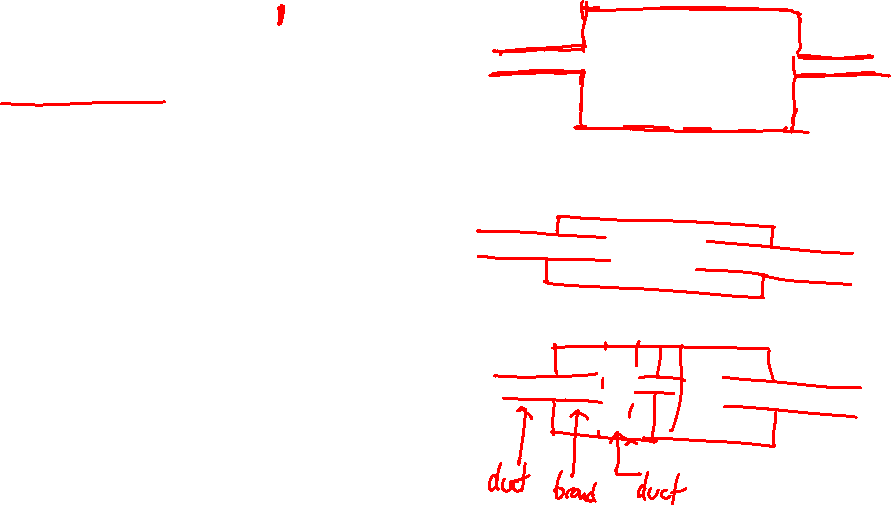 duct brand duct